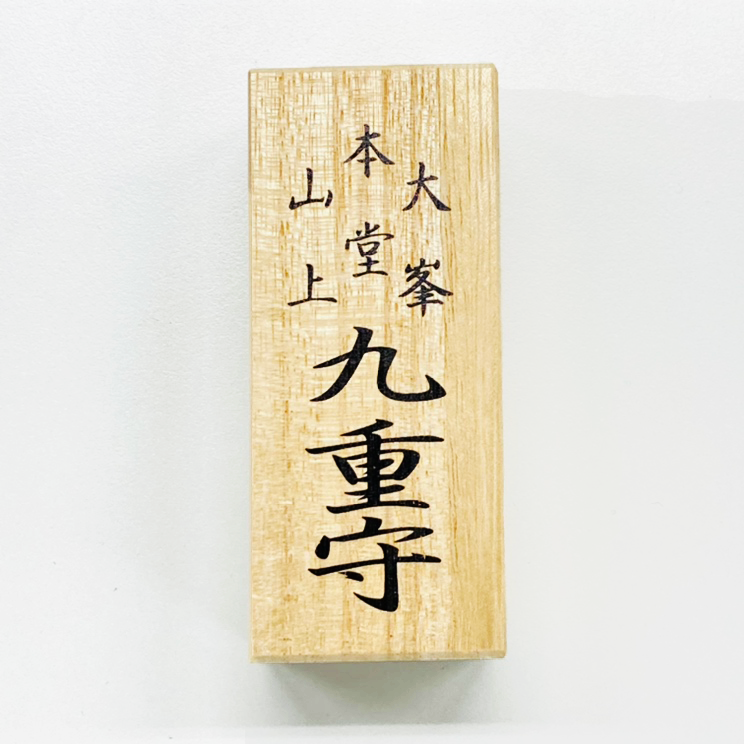 大峯
山上
本堂
九重守